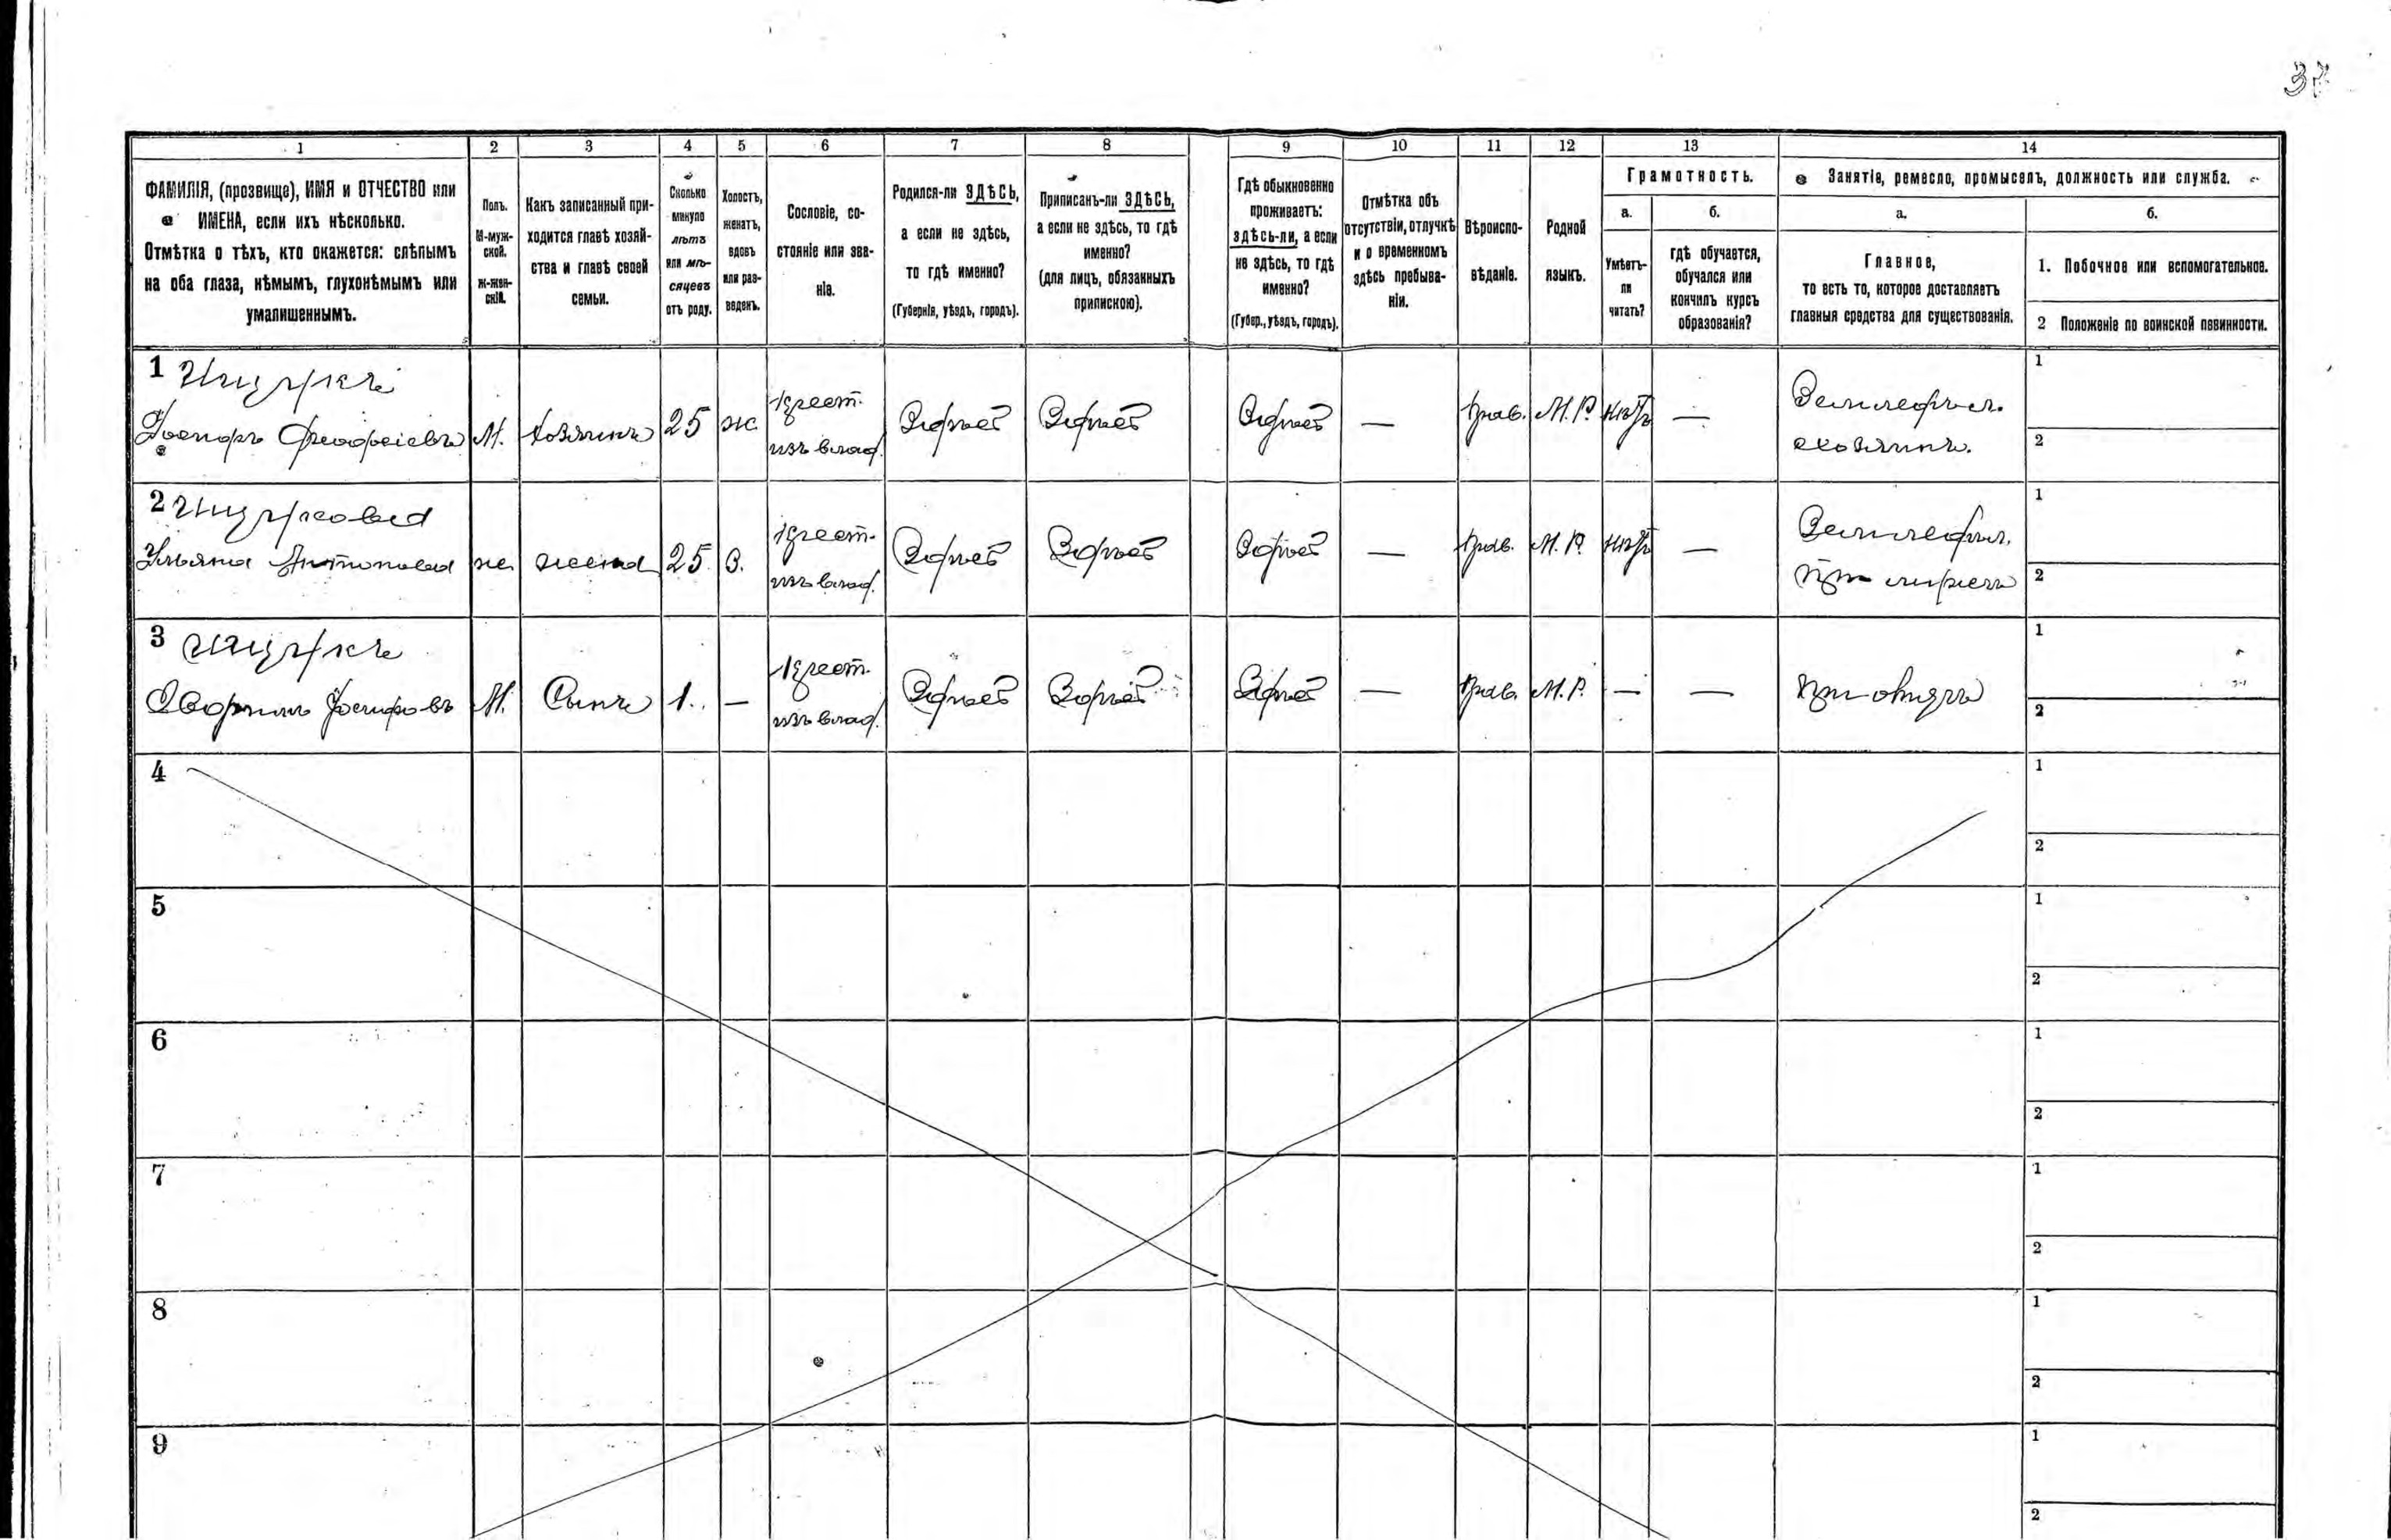 37
1
2
3
4
5
6
7
8
9
10
11
12
13
14
ФАМИЛІЯ, (прозвище), ИМЯ и ОТЧЕСТВО или
ИМЕНА, если ихъ нѣсколько.
Отмѣтка о тѣхъ, кто окажется: слѣпымъ
на оба глаза, нѣмымъ, глухонѣмымъ или
умалишеннымъ.
Полъ.
М-муж-
ской.
Ж-жен-
скій.
Какъ записанный при-
ходится главѣ хозяй-
ства и главѣ своей
семьи.
Сколько
минуло
лѣтъ
или мѣ-
сяцевъ
отъ роду.
Холостъ,
женатъ,
вдовъ
или раз-
веденъ.
Сословіе, со-
стояніе или зва-
ніе.
Родился-ли ЗДѢСЬ,
а если не здѣсь,
то гдѣ именно?
(Губернія, уѣздъ, городъ).
Приписанъ-ли ЗДѢСЬ,
а если не здѣсь, то гдѣ
именно?
(для лицъ, обязанныхъ
припискою).
Гдѣ обыкновенно
проживаетъ:
здѣсь-ли, а если
не здѣсь, то гдѣ
именно?
(Губер., уѣздъ, городъ).
Отмѣтка объ
отсутствіи, отлучкѣ
и о временномъ
здѣсь пребыва-
ніи.
Вѣроиспо-
вѣданіе.
Родной
языкъ.
Грамотность.
а.
Умѣетъ-
ли
читать?
б.
гдѣ обучается,
обучался или
кончилъ курсъ
образованія?
Занятіе, ремесло, промыселъ, должность или служба.
а.
Главное,
то есть то, которое доставляетъ
главныя средства для существованія.
б.
1. Побочное или вспомогательное.
2 Положеніе по воинской повинности.
1
М. Хозяинъ 25 ж
крест.
изъ влад.
Здѣсь Здѣсь Здѣсь — Прав. М. Р. нѣтъ —
Земледѣл.
хозяинъ.
1
2
2
Ульяна Антонова ж. жена 25 З.
крест.
изъ влад.
Здѣсь Здѣсь Здѣсь — Прав. М. Р. нѣтъ —
Земледѣл.
при мужѣ
1
2
3
М. Сынъ 1. —
крест.
изъ влад.
Здѣсь Здѣсь Здѣсь — Прав. М. Р. — —
при отцѣ
1
2
4
1
2
5
1
2
6
1
2
7
1
2
8
1
2
9
1
2